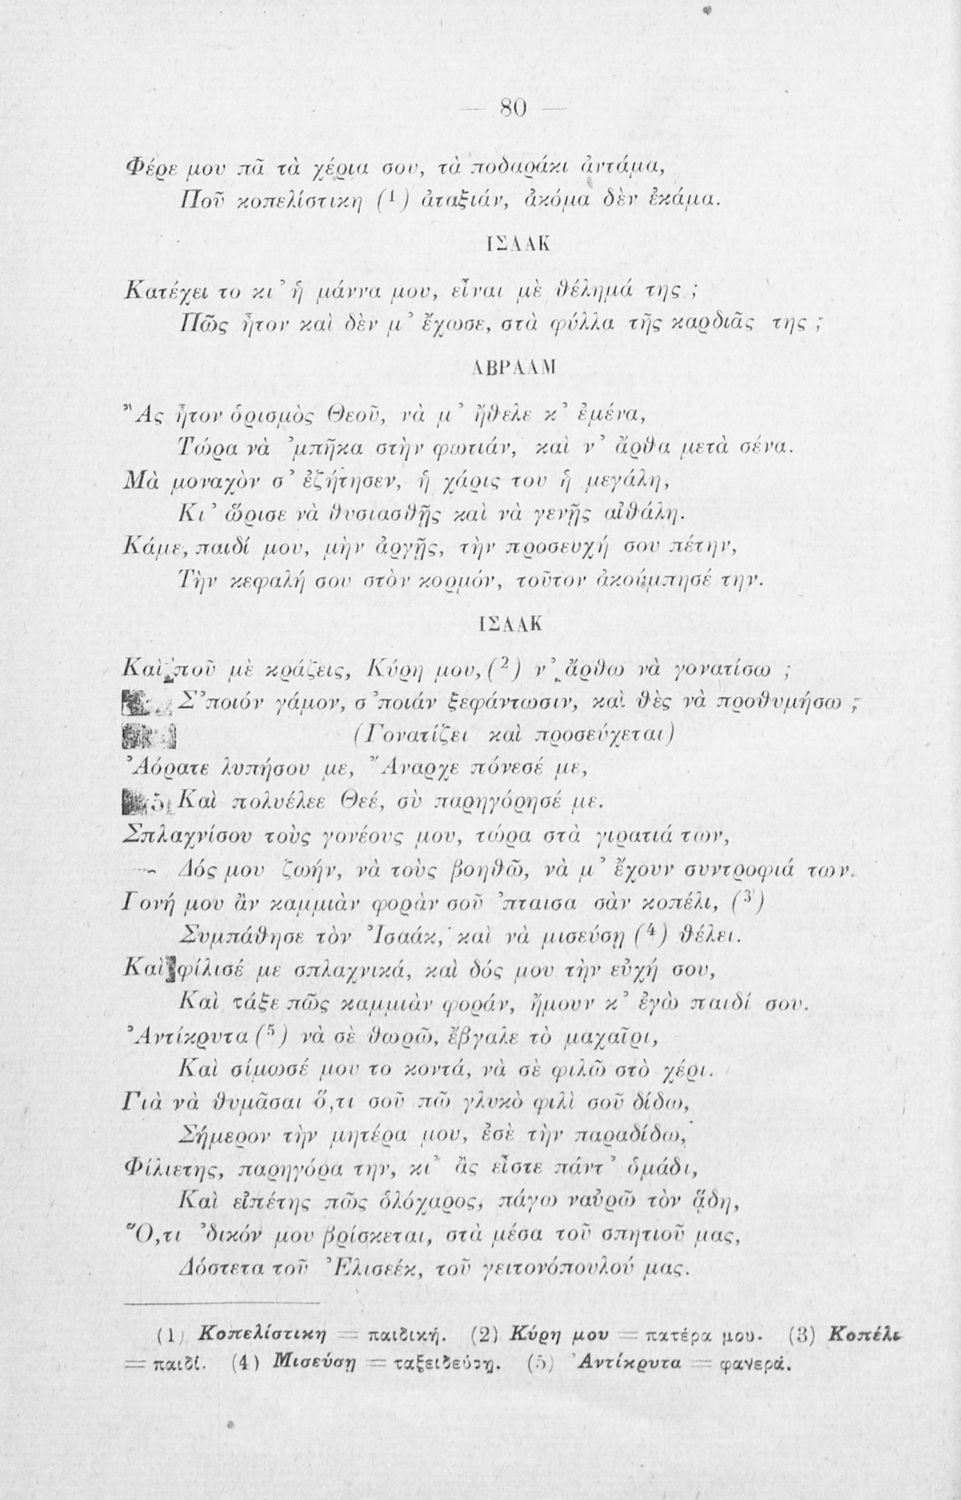 — 80 —
Φέρε μου πᾶ τὰ χέρια σου, τὰ ποδαράκι ἀντάμα,
Ποῦ κοπελίστικη (1) ἀταξιάν, ἀκόμα δὲν ἐκάμα.
ΙΣΑΑΚ
Κατέχει το κι᾿ ἡ μάννα μου, εἶναι μὲ θέλημά της ;
Πῶς ἦτον καὶ δὲν μ᾿ ἔχωσε, στὰ φύλλα τῆς καρδιᾶς της ;
ΑΒΡΑΑΜ
Ἂς ἦτον ὁρισμὸς Θεοῦ, νὰ μ᾿ ἤθελε κ᾿ ἐμένα,
Τώρα νὰ ᾿μπῆκα στὴν φωτιάν, καὶ ν᾿ ἄρθα μετὰ σένα.
Μὰ μοναχὸν σ᾿ ἐζήτησεν, ἡ χάρις του ἡ μεγάλη,
Κι᾿ ὥρισε νὰ θυσιασθῇς καὶ νὰ γενῇς αἰθάλη.
Κάμε, παιδί μου, μὴν ἀργῇς, τὴν προσευχή σου πέτην,
Τὴν κεφαλή σου στὸν κορμόν, τοῦτον ἀκούμπησέ την.
ΙΣΑΑΚ
Καὶ ποῦ μὲ κράζεις, Κύρη μου, (2) ν᾿ ἄρθω νὰ γονατίσω ;
Σ᾿ ποιόν γάμον, σ᾿ ποιάν ξεφάντωσιν, καὶ θὲς νὰ προθυμήσω ;
(Γονατίζει καὶ προσεύχεται)
Ἀόρατε λυπήσου με, Ἄναρχε πόνεσέ με,
Καὶ πολυέλεε Θεέ, σὺ παρηγόρησέ με.
Σπλαχνίσου τοὺς γονέους μου, τώρα στὰ γιρατιά των,
Δός μου ζωήν, νὰ τοὺς βοηθῶ, νὰ μ᾿ ἔχουν συντροφιά των.
Γονή μου ἂν καμμιὰν φορὰν σοῦ ᾿πταισα σὰν κοπέλι, (3)
Συμπάθησε τὸν Ἰσαάκ, καὶ νὰ μισεύσῃ (4) θέλει.
Καὶ φίλισέ με σπλαχνικά, καὶ δός μου τὴν εὐχή σου,
Καὶ τάξε πῶς καμμιὰν φοράν, ἤμουν κ᾿ ἐγὼ παιδί σου.
Ἀντίκρυτα (5) νὰ σὲ θωρῶ, ἔβγαλε τὸ μαχαῖρι,
Καὶ σίμωσέ μου το κοντά, νὰ σὲ φιλῶ στὸ χέρι.
Γιὰ νὰ θυμᾶσαι ὅ,τι σοῦ πῶ γλυκὸ φιλὶ σοῦ δίδω,
Σήμερον τὴν μητέρα μου, ἐσὲ τὴν παραδίδω,
Φίλιετης, παρηγόρα την, κι᾿ ἂς εἶστε πάντ᾿ ὁμάδι,
Καὶ εἰπέτης πῶς ὁλόχαρος, πάγω ναὐρῶ τὸν ᾅδη,
Ὅ,τι ᾿δικόν μου βρίσκεται, στὰ μέσα τοῦ σπητιοῦ μας,
Δόστετα τοῦ Ἐλισεέκ, τοῦ γειτονόπουλού μας.
(1) Κοπελίστικη = παιδική. (2) Κύρη μου = πατέρα μου. (3) Κοπέλι
= παιδί. (4) Μισεύσῃ = ταξειδεύσῃ. (5) Ἀντίκρυτα = φανερά.